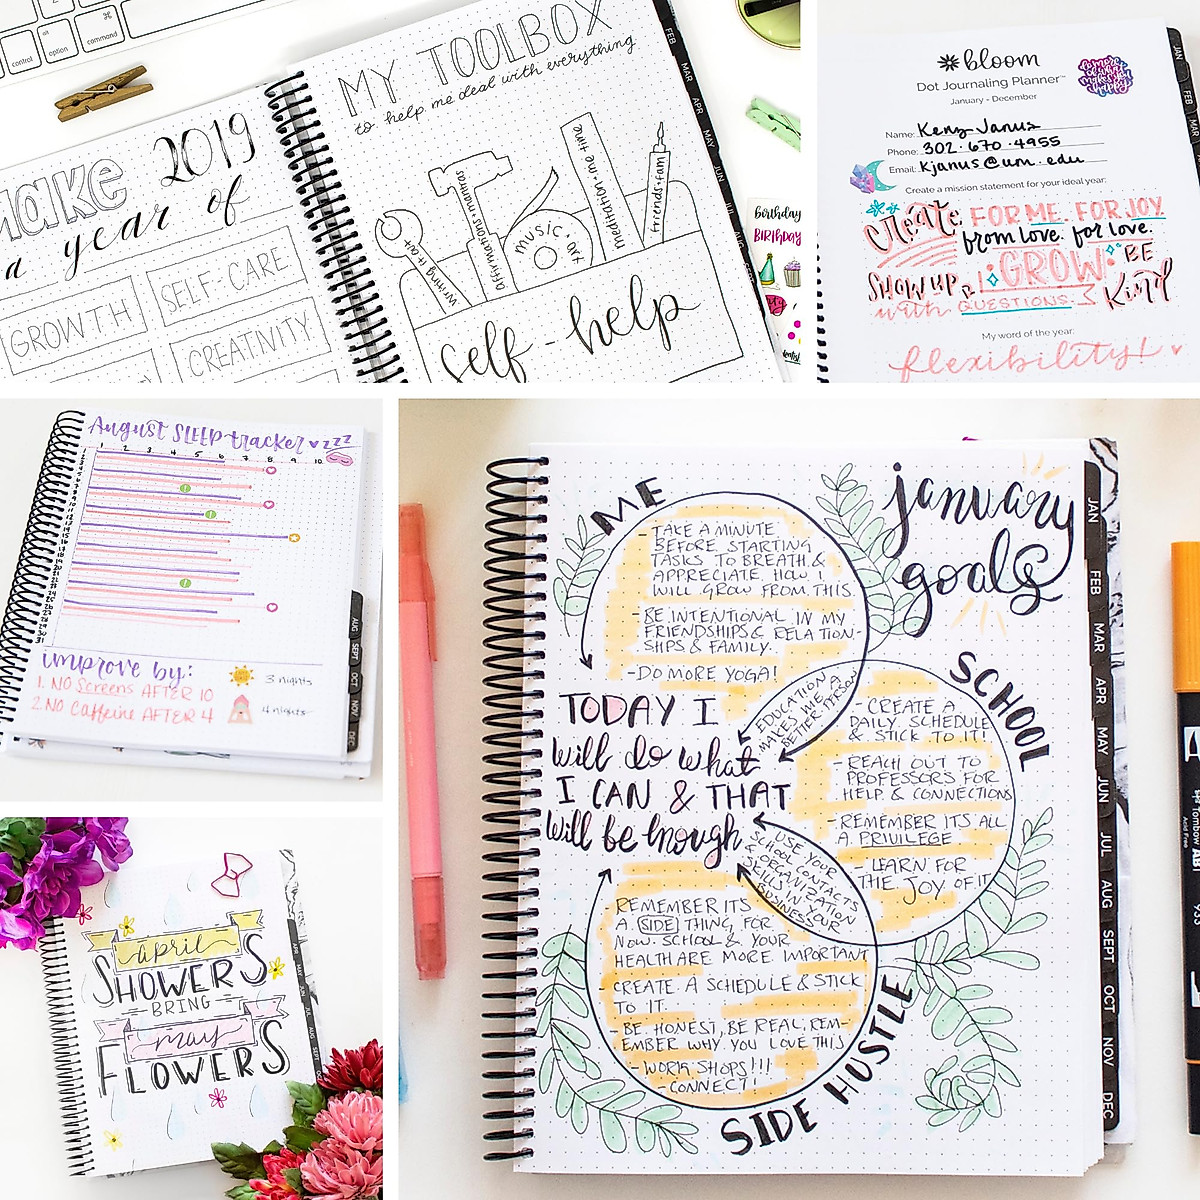 control
alt
option
command
make 2019
a year of
GROWTH
SELF-CARE
CREATIVITY
MY TOOLBOX
to help me deal with everything
writing it out
affirmations + mantras
MUSIC
meditation + me time
friends + fam
self-help
FEB
MAR
APR
MAY
JUN
JUL
AUG
birthday
BIRTHDAY
bloom
Dot Journaling Planner™
January - December
do more of what makes you happy
Name: Keny Janus
Phone: 302.670.4955
Email: Kjanus@um.edu
Create a mission statement for your ideal year:
Create FOR ME. FOR JOY.
from love. for love.
SHOW UP & GROW. BE
with QUESTIONS. Kind
My word of the year:
flexibility!
JAN
FEB
MAR
August SLEEP tracker zzz
1 2 3 4 5 6 7 8 9 10
improve by:
1. NO Screens AFTER 10
2. NO Caffeine AFTER 4
3 nights
4 nights
AUG
SEPT
OCT
NOV
DEC
april
SHOWERS
BRING
may
FLOWERS
january
goals
ME
- TAKE A MINUTE
BEFORE STARTING
TASKS TO BREATH &
APPRECIATE HOW I
WILL GROW FROM THIS
- BE INTENTIONAL IN MY
FRIENDSHIPS & RELATION-
SHIPS & FAMILY.
- DO MORE YOGA!
EDUCATION
MAKES ME A
BETTER PERSON
TODAY I
will do what
I CAN & THAT
will be enough
SCHOOL
- CREATE A
DAILY SCHEDULE
& STICK TO IT!
- REACH OUT TO
PROFESSORS FOR
HELP & CONNECTIONS
- REMEMBER ITS ALL
A PRIVILEGE
- LEARN FOR
THE JOY OF IT
USE YOUR
SCHOOL CONTACTS
& ORGANIZATION
SKILLS IN YOUR
BUSINESS
REMEMBER ITS
A SIDE THING FOR
NOW. SCHOOL & YOUR
HEALTH ARE MORE IMPORTANT
- CREATE A SCHEDULE & STICK
TO IT.
- BE HONEST, BE REAL, REM-
EMBER WHY YOU LOVE THIS
- WORK SHOPS!!!
CONNECT!
SIDE HUSTLE
JAN
FEB
MAR
APR
MAY
JUN
JUL
AUG
SEPT
OCT
NOV
DEC
Tombow ABT
Acid Free